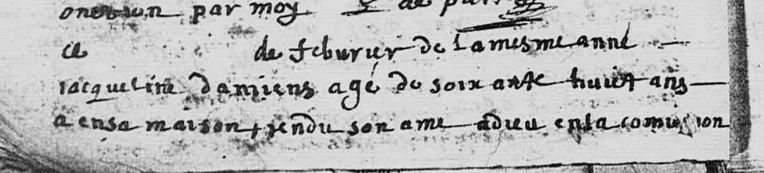 par moy
ce de feburier de lamesme anné
iacqueline damiens agé de soixante huict ans
a ensa maison rendu son ame adieu enla comunion